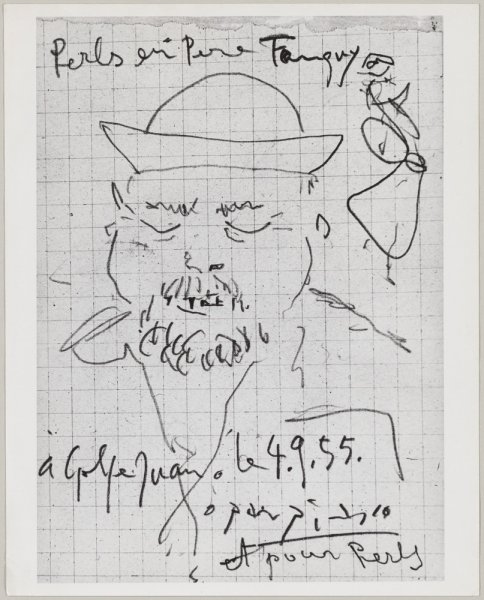 Perls en Pere Tanguy
à Golfe Juan, le 4.9.55.
par picasso
et pour Perls